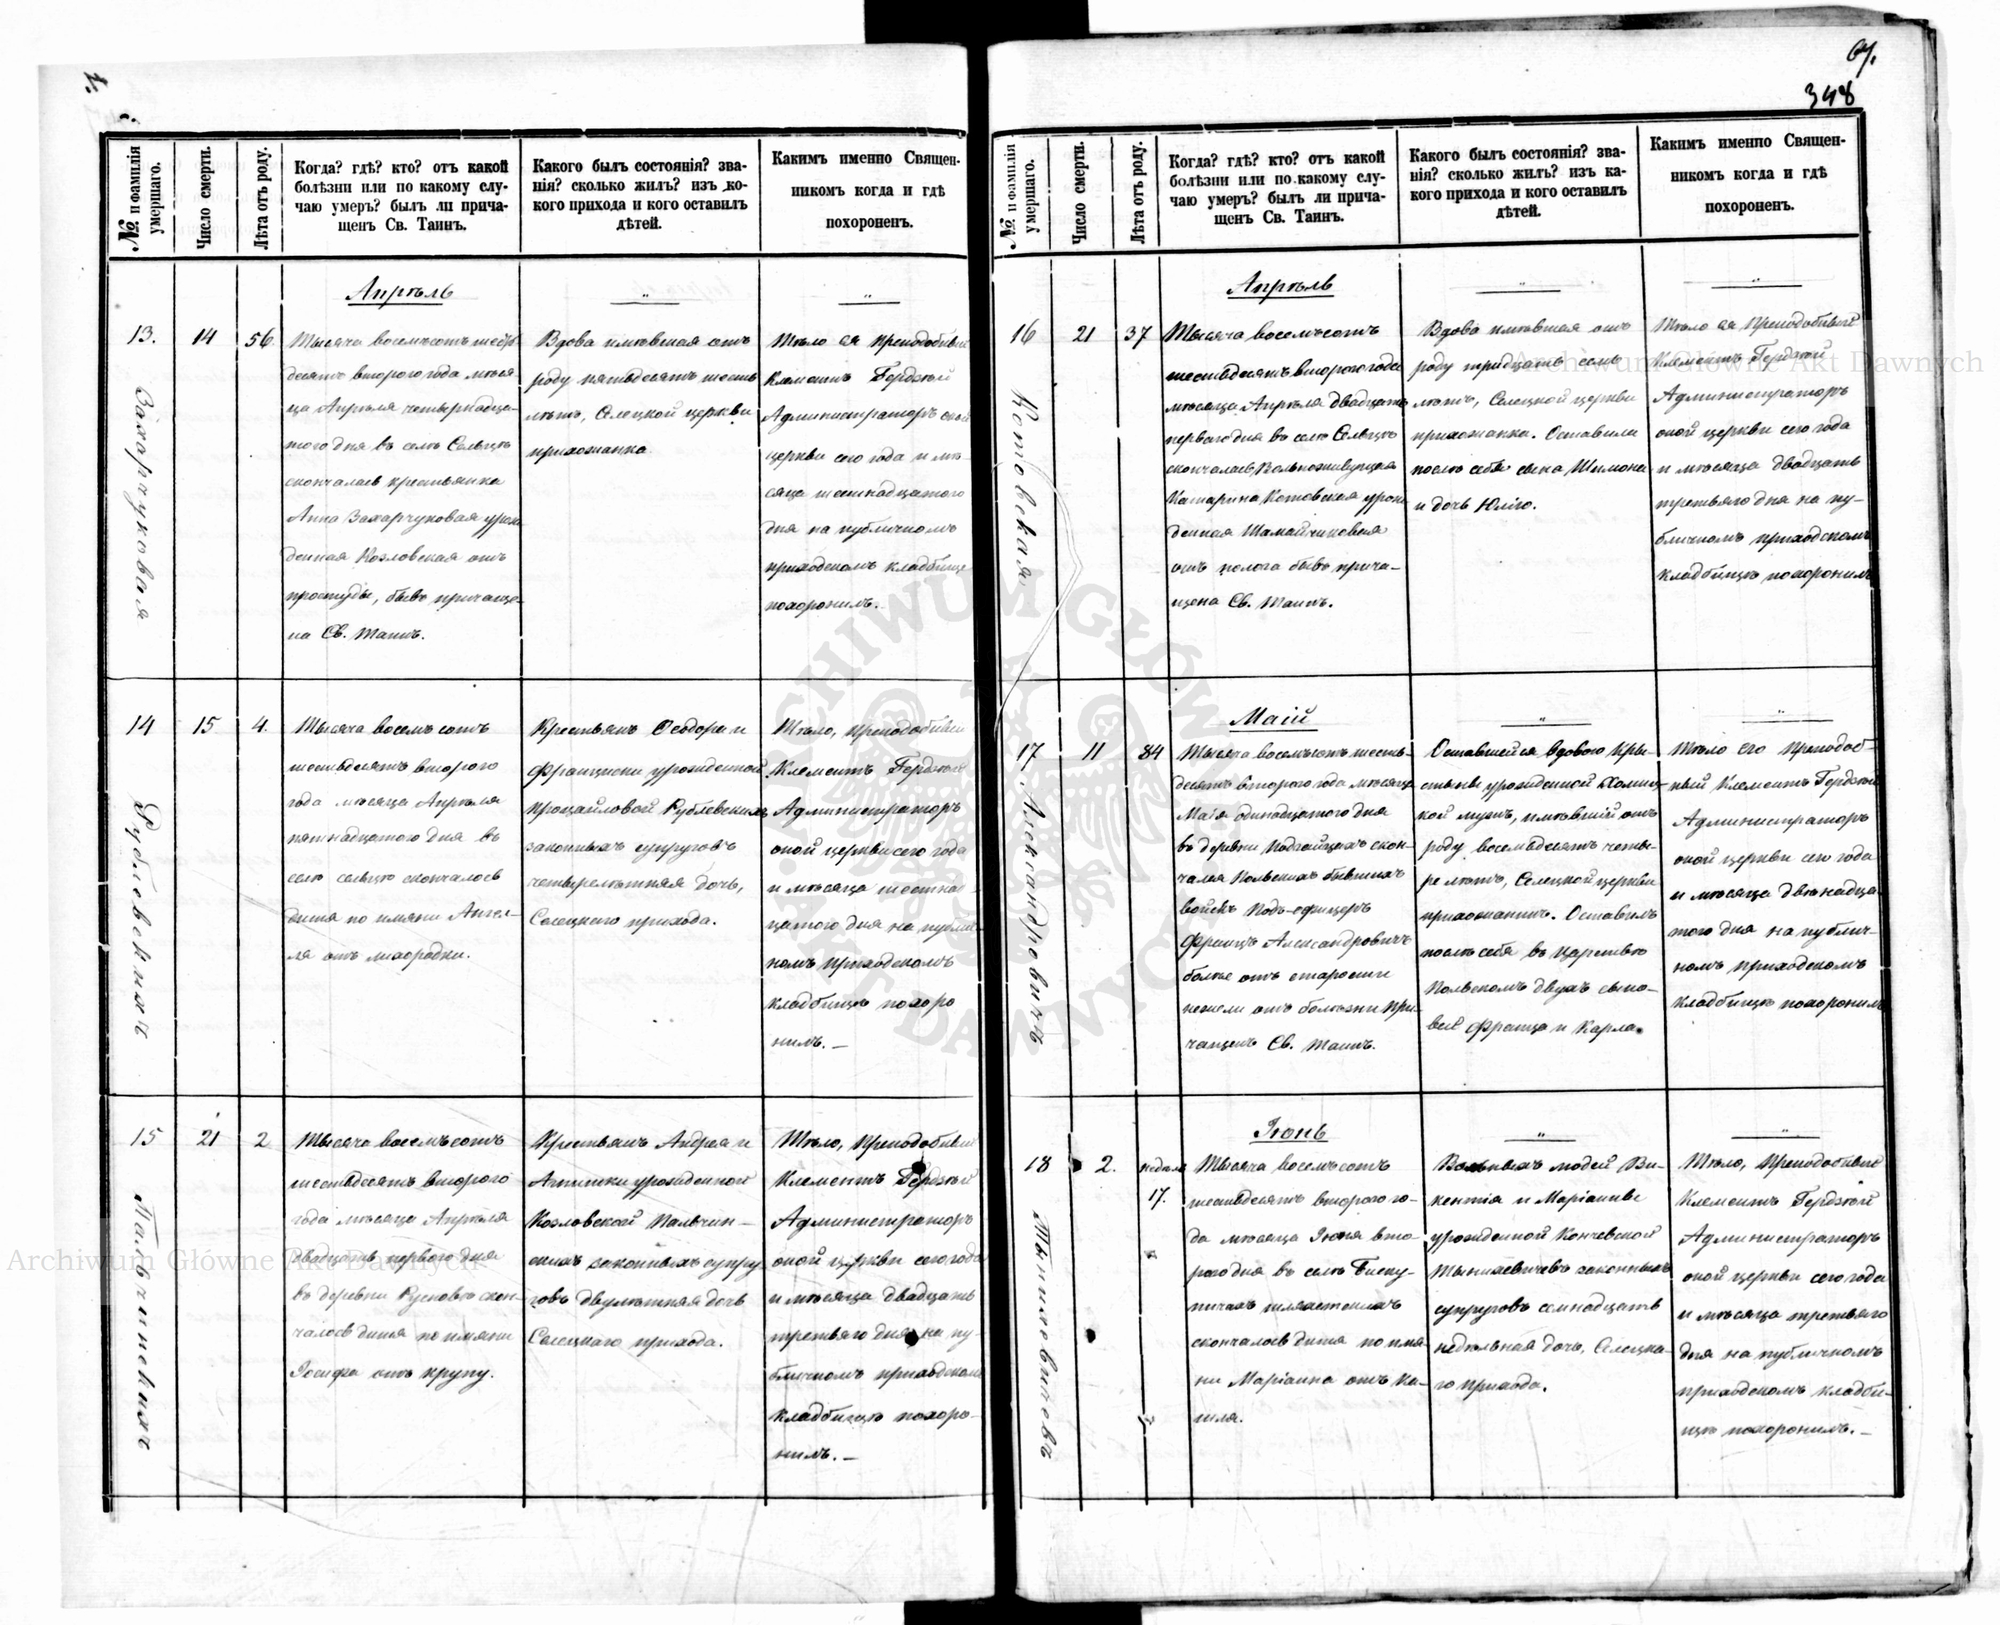 67.
348
№ и фамилія умершаго.
Число смерти.
Лѣта отъ роду.
Когда? гдѣ? кто? отъ какой
болѣзни или по какому слу-
чаю умеръ? былъ ли прича-
щенъ Св. Таинъ.
Какого былъ состоянія? зва-
нія? сколько жилъ? изъ ко-
кого прихода и кого оставилъ
дѣтей.
Какимъ именно Священ-
никомъ когда и гдѣ
похороненъ.
Апрѣль
13.
Захарчуковая
14
56
Тысяча восемъсотъ шесть
десятъ второго года мѣся
ца Апрѣля четырнадца-
того дня въ селѣ Сельцѣ
скончалась крестьянка
Анна Захарчуковая урож
денная Козловская отъ
простуды, бывъ причаще-
на Св. Таинъ.
Вдова имѣвшая отъ
роду пятьдесятъ шесть
лѣтъ, Селецкой церкви
прихожанка
Тѣло ея Преподобный
Климентъ Гердзюй
Администраторъ оной
церкви сего года и мѣ-
сяца шестнадцатого
дня на публичномъ
приходскомъ кладбище
похоронилъ.
14
Рублевскихъ
15
4.
Тысяча восемъсотъ
шестьдесятъ второго
года мѣсяца Апрѣля
пятнадцатого дня въ
селѣ Сельцѣ скончалось
дитя по имяни Ангел-
ля отъ лихорадки.
Крестьянъ Ѳеодора и
Францишки урожденной
Рублевскихъ
законныхъ супруговъ
четырелѣтняя дочь,
Селецкого прихода.
Тѣло, Преподобный
Климентъ Гердзюй
Администраторъ
оной церкви сего года
и мѣсяца шестнад-
цатого дня на публич-
номъ приходскомъ
кладбищѣ похоро
нилъ. —
15
Пальчинскихъ
21
2
Тысяча восемъсотъ
шестьдесятъ второго
года мѣсяца Апрѣля
двадцать первого дня
въ деревни скон-
чалось дитя по имяни
Іосифа отъ крупу.
Крестьянъ Андрея и
урожденной
Козловской Пальчин-
скихъ законныхъ супру
говъ двулѣтняя дочь
Селецкого прихода.
Тѣло, Преподобный
Климентъ Гердзюй
Администраторъ
оной церкви сего года
и мѣсяца двадцать
третьяго дня на пу-
бличномъ приходскомъ
кладбищѣ похоро-
нилъ. —
№ и фамилія умершаго.
Число смерти.
Лѣта отъ роду.
Когда? гдѣ? кто? отъ какой
болѣзни или по какому слу-
чаю умеръ? былъ ли прича-
щенъ Св. Таинъ.
Какого былъ состоянія? зва-
нія? сколько жилъ? изъ ка-
кого прихода и кого оставилъ
дѣтей.
Какимъ именно Священ-
никомъ когда и гдѣ
похороненъ.
Апрѣль
16
Котовская
21
37
Тысяча восемъсотъ
шестьдесятъ второго года
мѣсяца Апрѣля двадцать
первого дня въ селѣ Сельцѣ
скончалась Вольноживущая
Катарина Котовская урож
денная
отъ полога бывъ прича-
щена Св. Таинъ.
Вдова имѣвшая отъ
роду тридцать семь
лѣтъ, Селецкой церкви
прихожанка. Оставила
послѣ себя сына Шимона
и дочь Юлію.
Тѣло ея Преподобный
Климентъ Гердзюй
Администраторъ
оной церкви сего года
и мѣсяца двадцать
третьяго дня на пу-
бличномъ приходскомъ
кладбищѣ похоронилъ
Маій
17
Александровичъ
11
84
Тысяча восемъсотъ шесть-
десятъ второго года мѣсяца
Маія одинадцатого дня
въ деревни скон-
чался Польскихъ бывшихъ
войскъ Подъ-офицеръ
Францъ Александровичъ
болѣе отъ старости
нежели отъ болѣзни при-
чащенъ Св. Таинъ.
Оставшейся вдовою
урожденной
кой мужъ, имѣвшій отъ
роду восемьдесятъ четы-
ре лѣтъ, Селецкой церкви
прихожанинъ. Оставилъ
послѣ себя въ Царствѣ
Польскомъ двухъ сыно-
вей Франца и Карла.
Тѣло его Преподоб-
ный Климентъ Гердзюй
Администраторъ
оной церкви сего года
и мѣсяца двѣнадца-
того дня на публич-
номъ приходскомъ
кладбищѣ похоронилъ
Іюнь
18
Тынкевичовъ
2.
недѣль
17.
Тысяча восемъсотъ
шестьдесятъ второго го-
да мѣсяца Іюня вто-
рого дня въ селѣ Биску-
пичахъ шляхетскихъ
скончалось дитя по имя
ни Маріанна отъ ка-
шля.
Вольныхъ людей Ви-
кентія и Маріанны
урожденной Кончевской
законныхъ
супруговъ семнадцать
недѣльная дочь, Селецка-
го прихода.
Тѣло, Преподобный
Климентъ Гердзюй
Администраторъ
оной церкви сего года
и мѣсяца третьяго
дня на публичномъ
приходскомъ кладби-
щѣ похоронилъ. —
Archiwum Główne Akt Dawnych
Archiwum Główne Akt Dawnych
ARCHIWUM GŁÓWNE AKT DAWNYCH